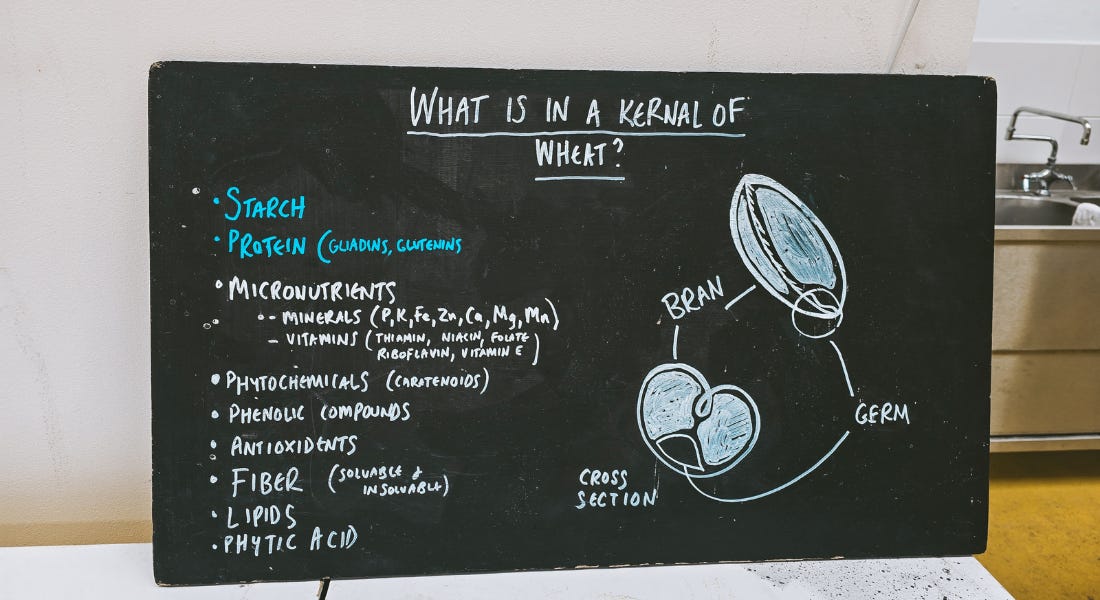 WHAT IS IN A KERNAL OF
WHEAT?
• STARCH
• PROTEIN (GLIADINS, GLUTENINS
• MICRONUTRIENTS
- MINERALS (P,K,Fe,Zn,Ca,Mg,Mn)
- VITAMINS (THIAMIN, NIACIN, FOLATE
RIBOFLAVIN, VITAMIN E)
• PHYTOCHEMICALS (CAROTENOIDS)
• PHENOLIC COMPOUNDS
• ANTIOXIDENTS
• FIBER (SOLUABLE &
INSOLUABLE)
• LIPIDS
• PHYTIC ACID
BRAN
GERM
CROSS
SECTION